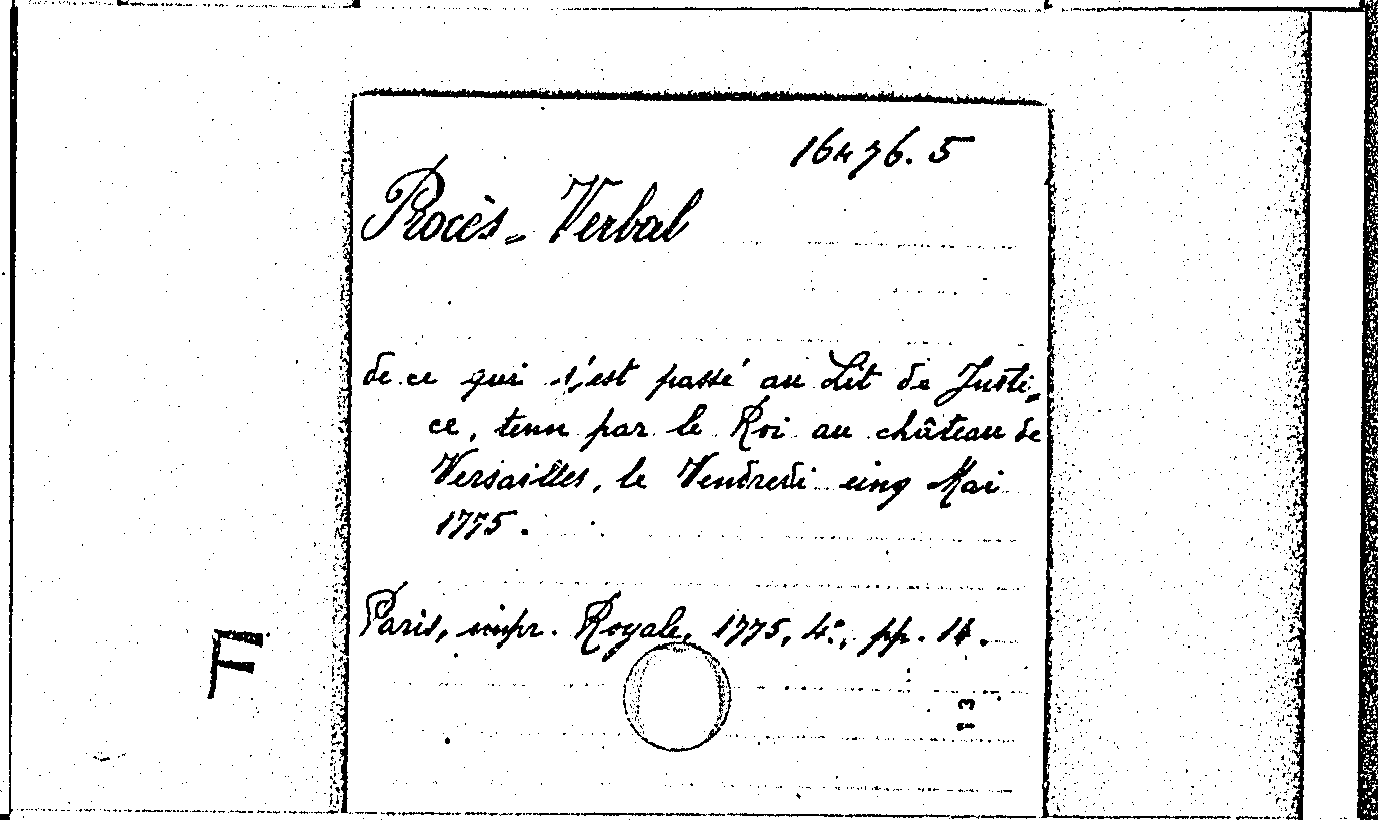 16476.5
Procès-Verbal
de ce qui s'est passé au Lit de Justi-
ce, tenu par le Roi au château de
Versailles, le Vendredi cinq Mai
1775.
Paris, impr. Royale, 1775, 4°, pp. 14.
F
13